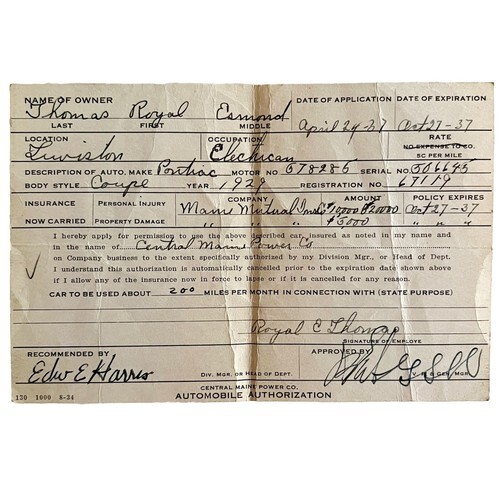 NAME OF OWNER DATE OF APPLICATION DATE OF EXPIRATION
Thomas Royal Esmond April 29-37 Oct 27-37
LAST FIRST MIDDLE
LOCATION OCCUPATION RATE
Lewiston Electrican NO EXPENSE TO CO.
5C PER MILE
DESCRIPTION OF AUTO. MAKE Pontiac MOTOR NO 578285 SERIAL NO 506645
BODY STYLE Coupe YEAR 1929 REGISTRATION NO 67119
INSURANCE Personal Injury COMPANY AMOUNT POLICY EXPIRES
Maine Mutual Ins. $10000 $20000 Oct 27-37
NOW CARRIED Property Damage " " " $5000 " " "
I hereby apply for permission to use the above described car, insured as noted in my name and
in the name of Central Maine Power Co
on Company business to the extent specifically authorized by my Division Mgr., or Head of Dept.
I understand this authorization is automatically cancelled prior to the expiration date shown above
if I allow any of the insurance now in force to lapse or if it is cancelled for any reason.
CAR TO BE USED ABOUT 200 MILES PER MONTH IN CONNECTION WITH (STATE PURPOSE)
Royal E Thomas
SIGNATURE OF EMPLOYE
RECOMMENDED BY APPROVED BY
Edw E Harris
DIV. MGR. OR HEAD OF DEPT. V. P. & GEN. MGR.
CENTRAL MAINE POWER CO.
130 1000 8-34 AUTOMOBILE AUTHORIZATION